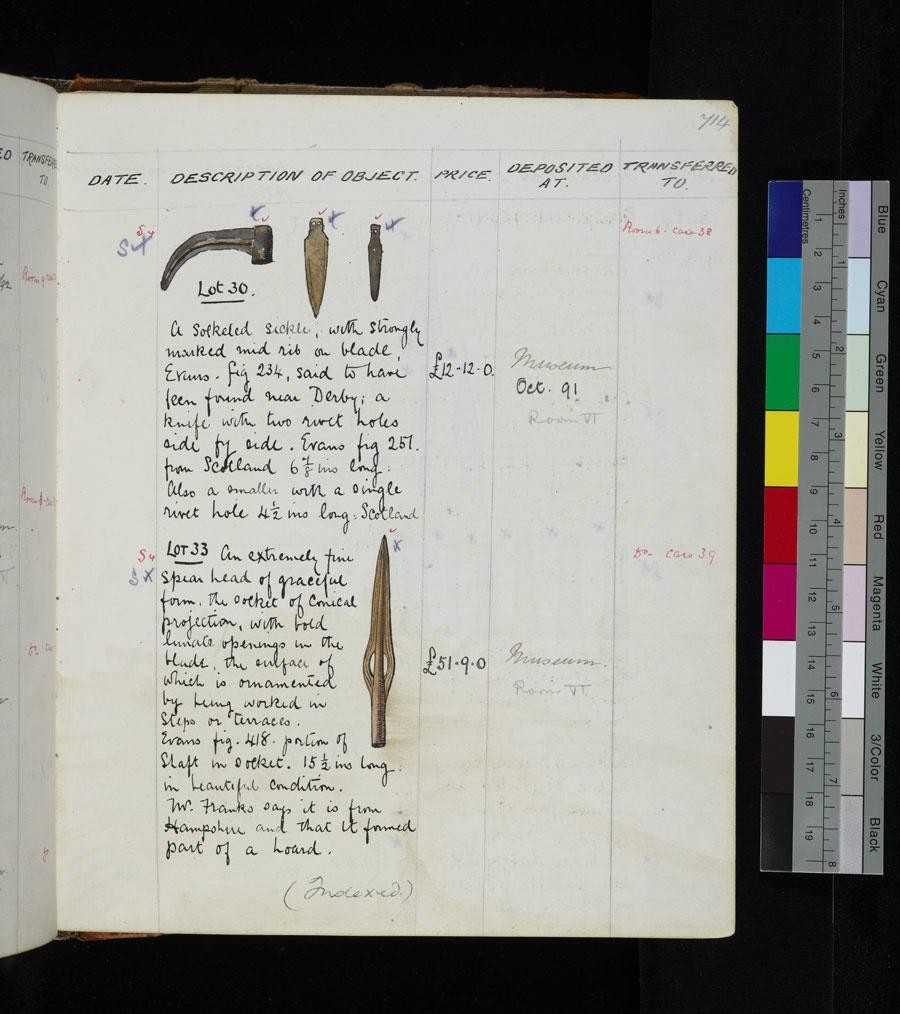 714
DATE. DESCRIPTION OF OBJECT. PRICE. DEPOSITED AT. TRANSFERRED TO.
TRANSFERRED TO.
S4
SX
Room 6. case 38
Lot 30.
A socketed sickle, with strongly
marked mid rib on blade,
Evans. fig 234, said to have
been found near Derby; a
knife with two rivet holes
side by side. Evans fig 251.
from Scotland 6 7/8 ins long:
Also a smaller with a single
rivet hole 4½ ins long: Scotland
£12-12-0.
Museum
Oct. 91
Room VI
S4
SX
LOT 33 An extremely fine
spear head of graceful
form, the socket of conical
projection, with bold
lunate openings in the
blade, the surface of
which is ornamented
by being worked in
steps or terraces.
Evans fig. 418. portion of
Shaft in socket. 15½ ins long:
in beautiful condition.
Mr. Franks says it is from
Hampshire and that it formed
part of a hoard.
£51-9-0
Museum.
Room VI
Do- case 39
(Indexed.)
Centimetres
Inches
1 2 3 4 5 6 7 8 9 10 11 12 13 14 15 16 17 18 19
1 2 3 4 5 6 7 8
Blue
Cyan
Green
Yellow
Red
Magenta
White
3/Color
Black